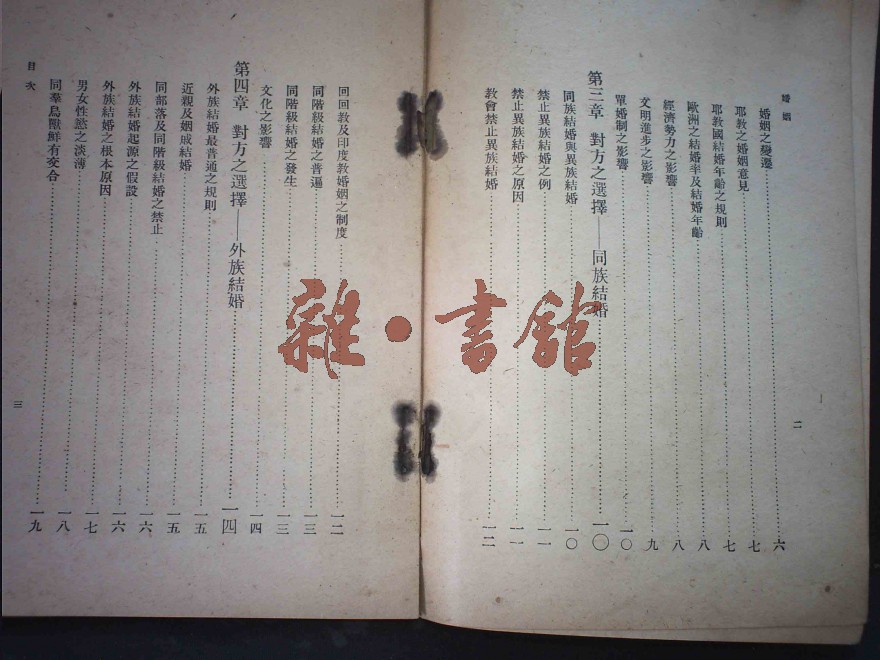 婚姻
婚姻之變遷……六
耶教之婚姻意見……七
耶教國結婚年齡之規則……七
歐洲之結婚率及結婚年齡……八
經濟勢力之影響……八
文明進步之影響……九
單婚制之影響……一〇
第三章 對方之選擇——同族結婚……一〇
同族結婚與異族結婚……一〇
禁止異族結婚之例……一一
禁止異族結婚之原因……一一
教會禁止異族結婚……一二
二
回回教及印度教婚姻之制度……一二
同階級結婚之普遍……一三
同階級結婚之發生……一三
文化之影響……一四
第四章 對方之選擇——外族結婚……一四
外族結婚最普通之規則……一五
近親及姻戚結婚……一五
同部落及同階級結婚之禁止……一六
外族結婚起源之假設……一六
外族結婚之根本原因……一七
男女性慾之淡薄……一八
同羣鳥獸鮮有交合……一九
目次
三
雜·書館